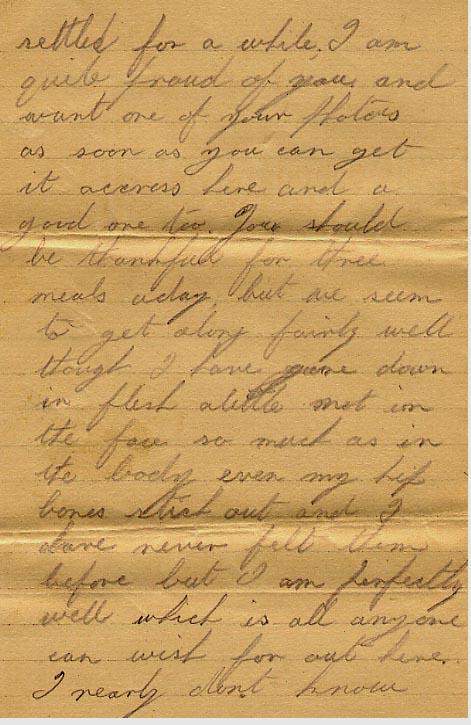 settled for a while. I am
quite proud of you and
want one of your photos
as soon as you can get
it accress here and a
good one too. You should
be thankful for three
meals aday, but we seem
to get along fairly well
though I have gone down
in flesh alittle not in
the face so much as in
the body even my hip
bones stick out and I
have never felt them
before but I am perfectly
well which is all anyone
can wish for out here.
I nearly dont know